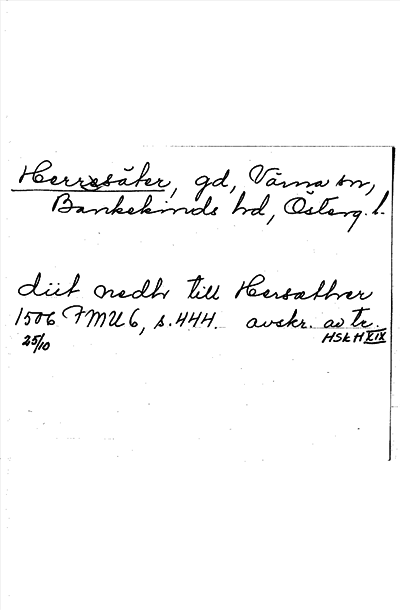 Herresäter, gd, Värna sn,
Bankekinds hd, Österg. l.
diit nedh till Hersætther
1506 FMU 6, s. 444. avskr. av tr.
25/10 HSkH XIX